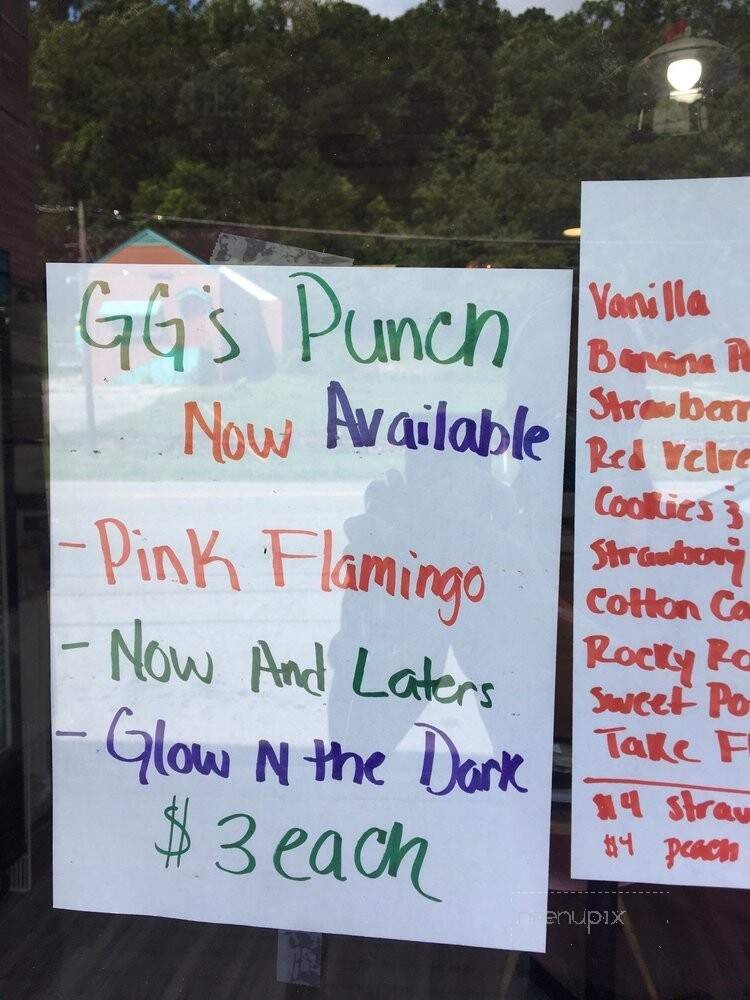 GG's Punch
Now Available
- Pink Flamingo
- Now And Laters
- Glow N the Dark
$3 each
Vanilla
Banana
Red Velve
Cookies
Cotton Ca
Rocky Ro
Sweet Po
Take Fl
$4 straw
$4 peach
menupix